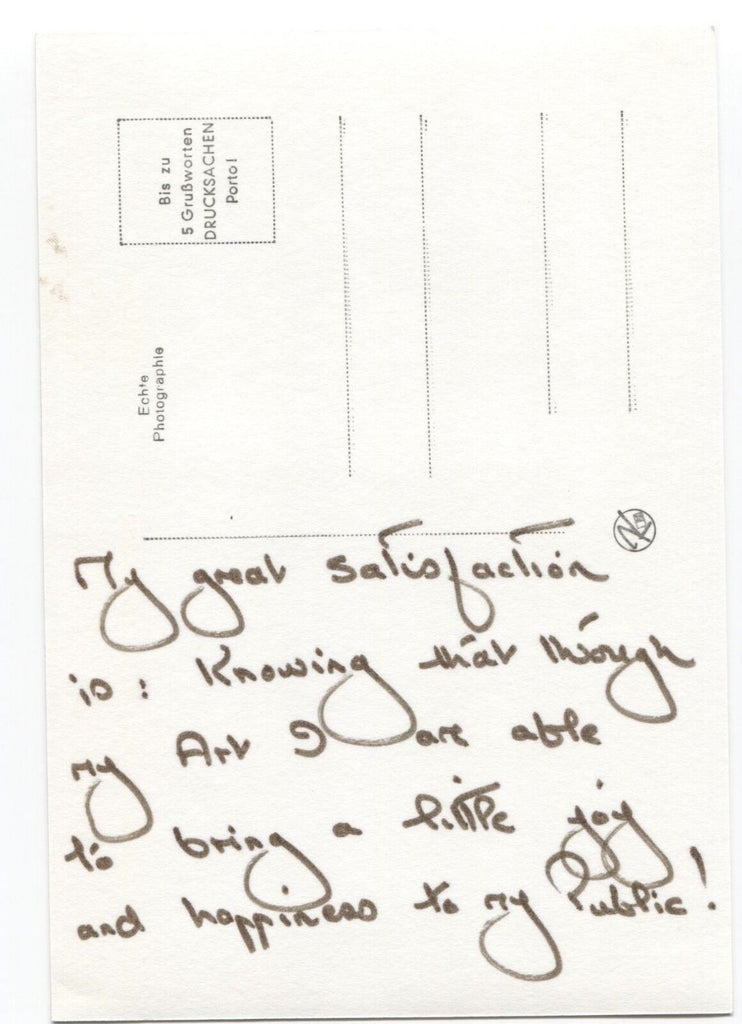 Bis zu
5 Grußworten
DRUCKSACHEN
Porto!
Echte
Photographie
My great satisfaction
is: Knowing that through
my Art I am able
to bring a little joy
and happiness to my Public!